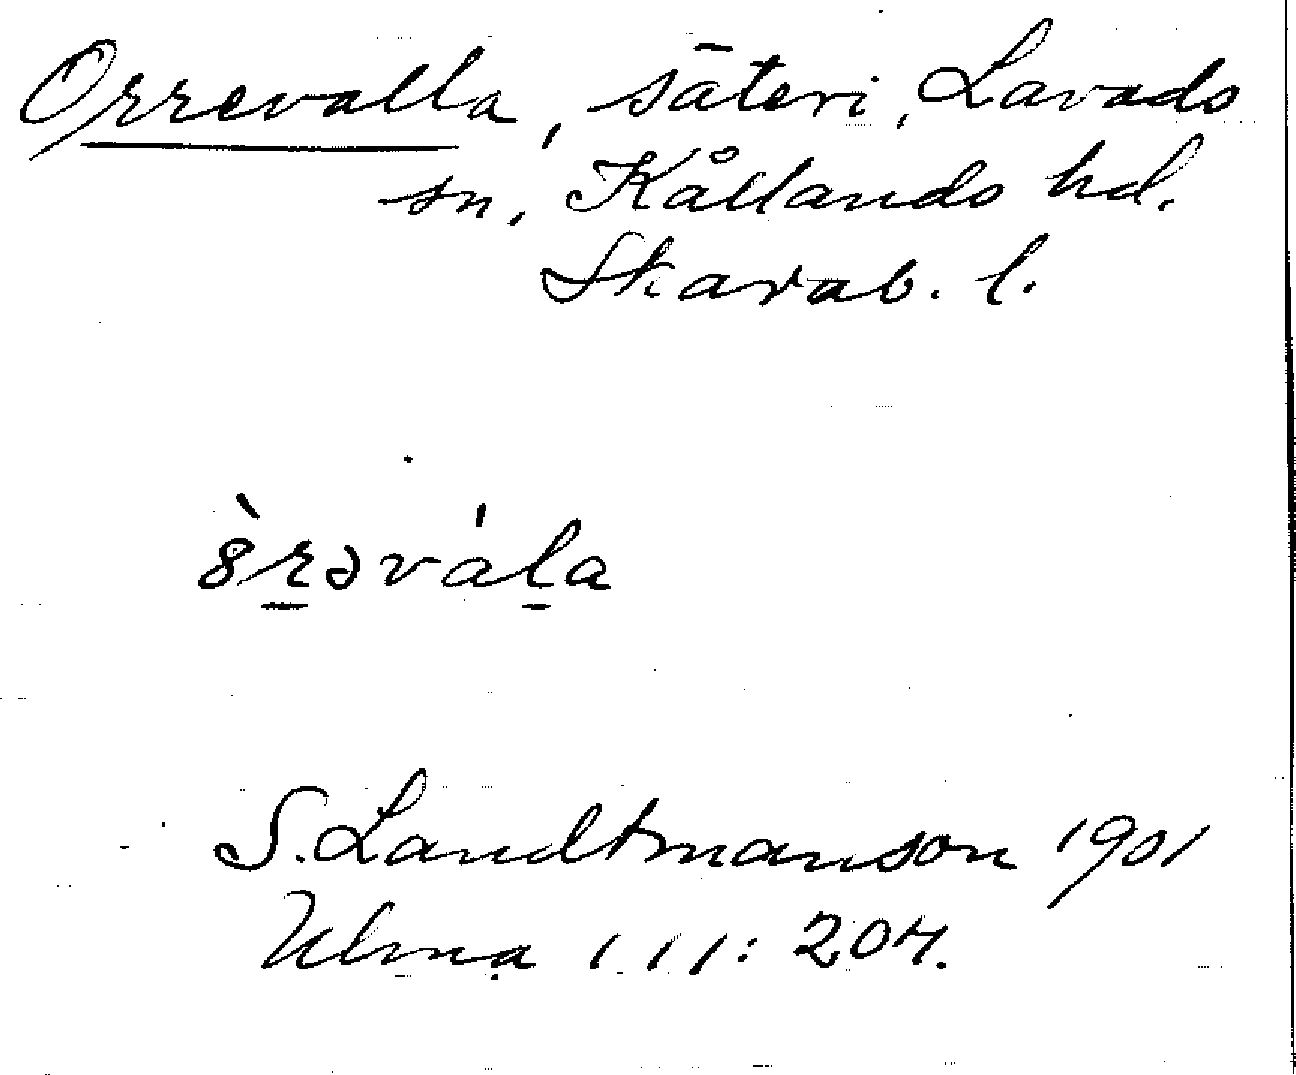 Orrevalla, säteri, Lavads
sn, Kållands hd.
Skarab. l.
ȣ̀r̠əvála̠
S. Landtmanson 1901
Ulma 111: 204.